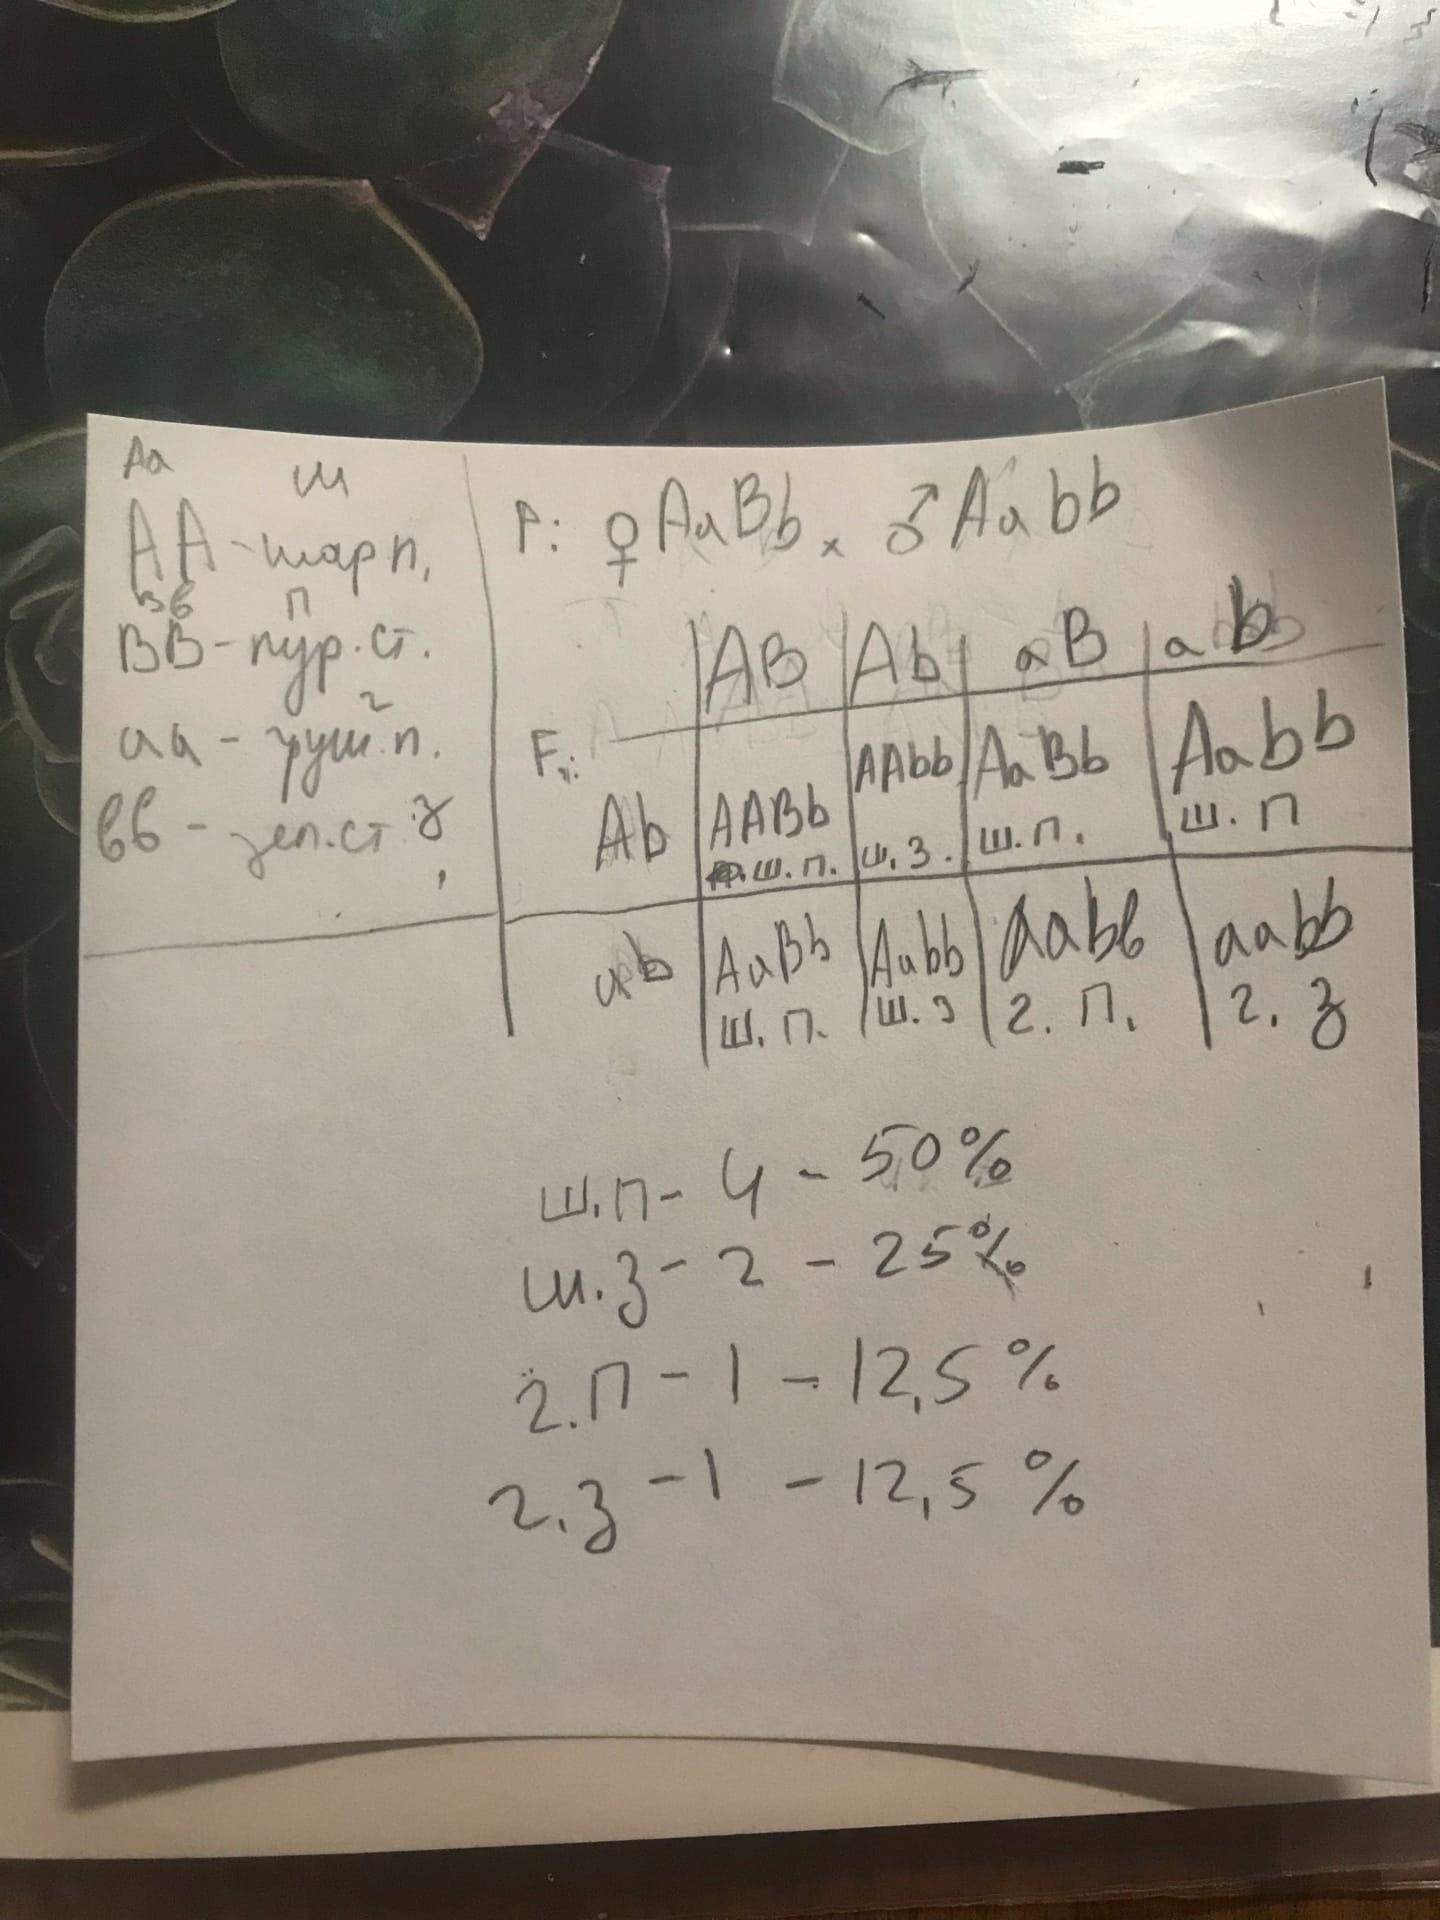 Аа
ш
АА - шар п.
Вв п
ВВ - пур. ст.
г
аа - груш. п.
вв - зел. ст. з
P: ♀ AaBb x ♂ Aabb
AB Ab aB ab
F₁:
Ab AABb AAbb AaBb Aabb
ш. п. ш. з. ш. п. ш. п
ab AaBb Aabb Aabb aabb
ш. п. ш. з г. п. г. з
ш. п - 4 - 50%
ш. з - 2 - 25%
г. п - 1 - 12,5%
г. з - 1 - 12,5%